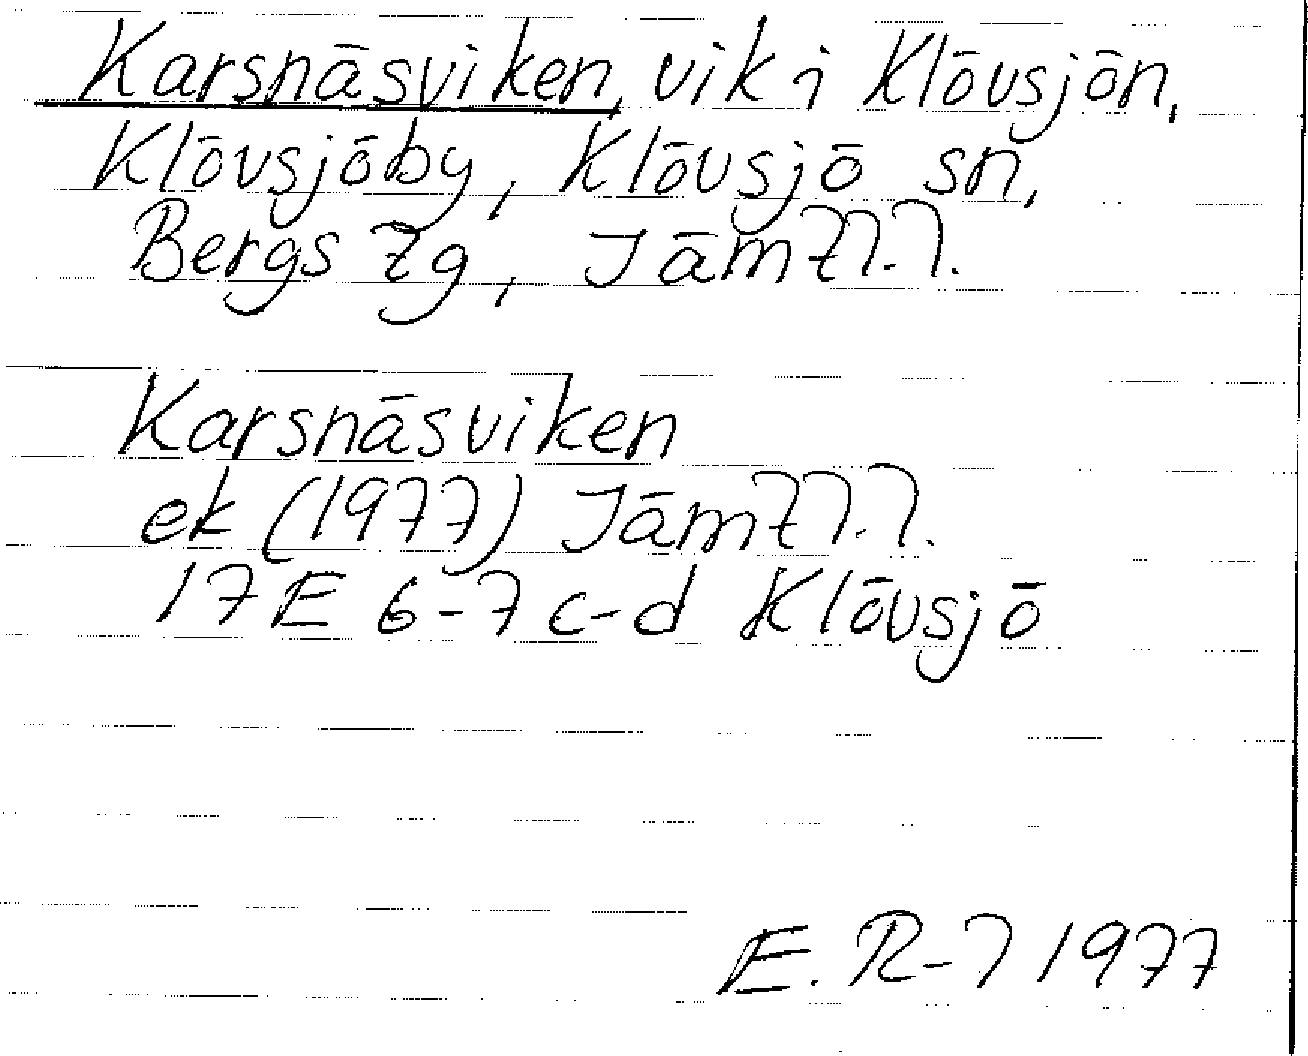 Karsnäsviken, vik i Klövsjön,
Klövsjöby, Klövsjö sn,
Bergs tg, Jämtl. l.
Karsnäsviken
ek (1977) Jämtl. l.
17 E 6-7 c-d Klövsjö
E. R-l 1977